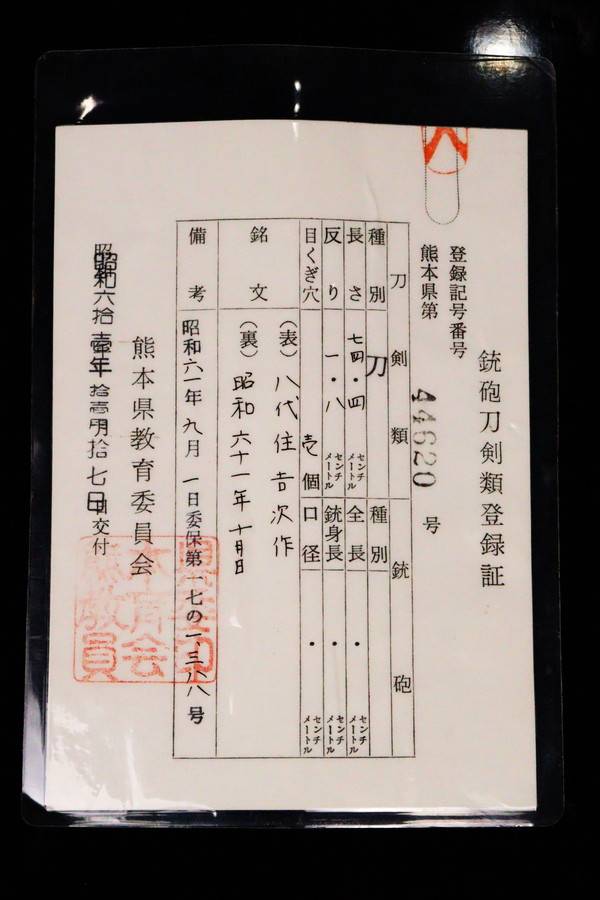 銃砲刀剣類登録証
登録記号番号
熊本県第 44620 号
刀剣類 銃砲
種別 刀 種別
長さ 七四・四 センチメートル 全長 ・ センチメートル
反り 一・八 センチメートル 銃身長 ・ センチメートル
目くぎ穴 壱個 口径 ・ センチメートル
銘文 (表) 八代住吉次作
(裏) 昭和六十一年十月日
備考 昭和六一年九月一日委保第一七の一、三八八号
熊本県教育委員会
昭和六拾壱年拾壱月拾七日交付